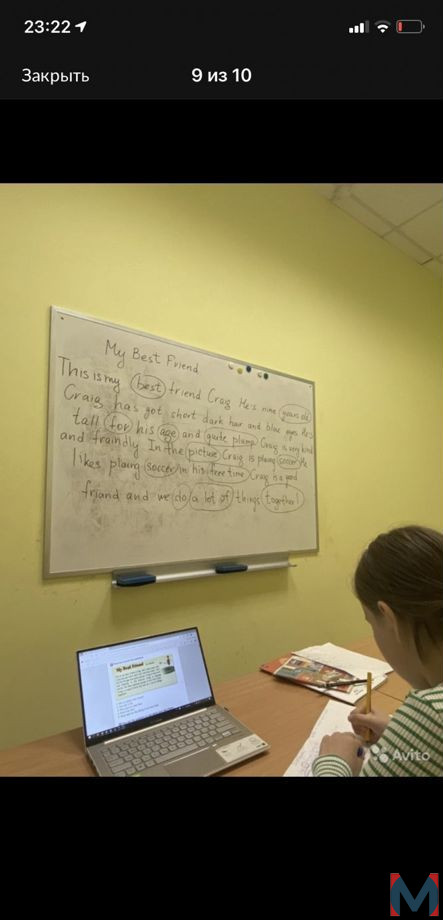 23:22
Закрыть
9 из 10
My Best Friend
This is my best friend Craig He's nine years old
Craig has got short dark hair and blue eyes He's
tall for his age and quite plump Craig is very kind
and fraindly In the picture Craig is plaing soccer He
likes plaing soccer in his free time Craig is a good
friand and we do a lot of things together!
My Best Friend
Avito
M